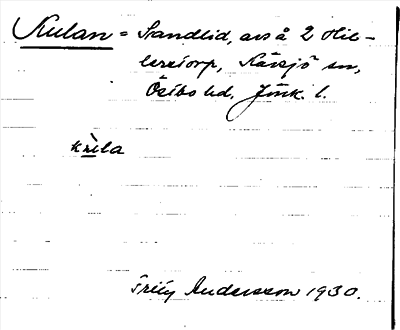 Kulan = Sandlid, avs å 2 Hil-
lerstorp, Kävsjö sn,
Östbo hd, Jönk. l.
Andersson 1930.